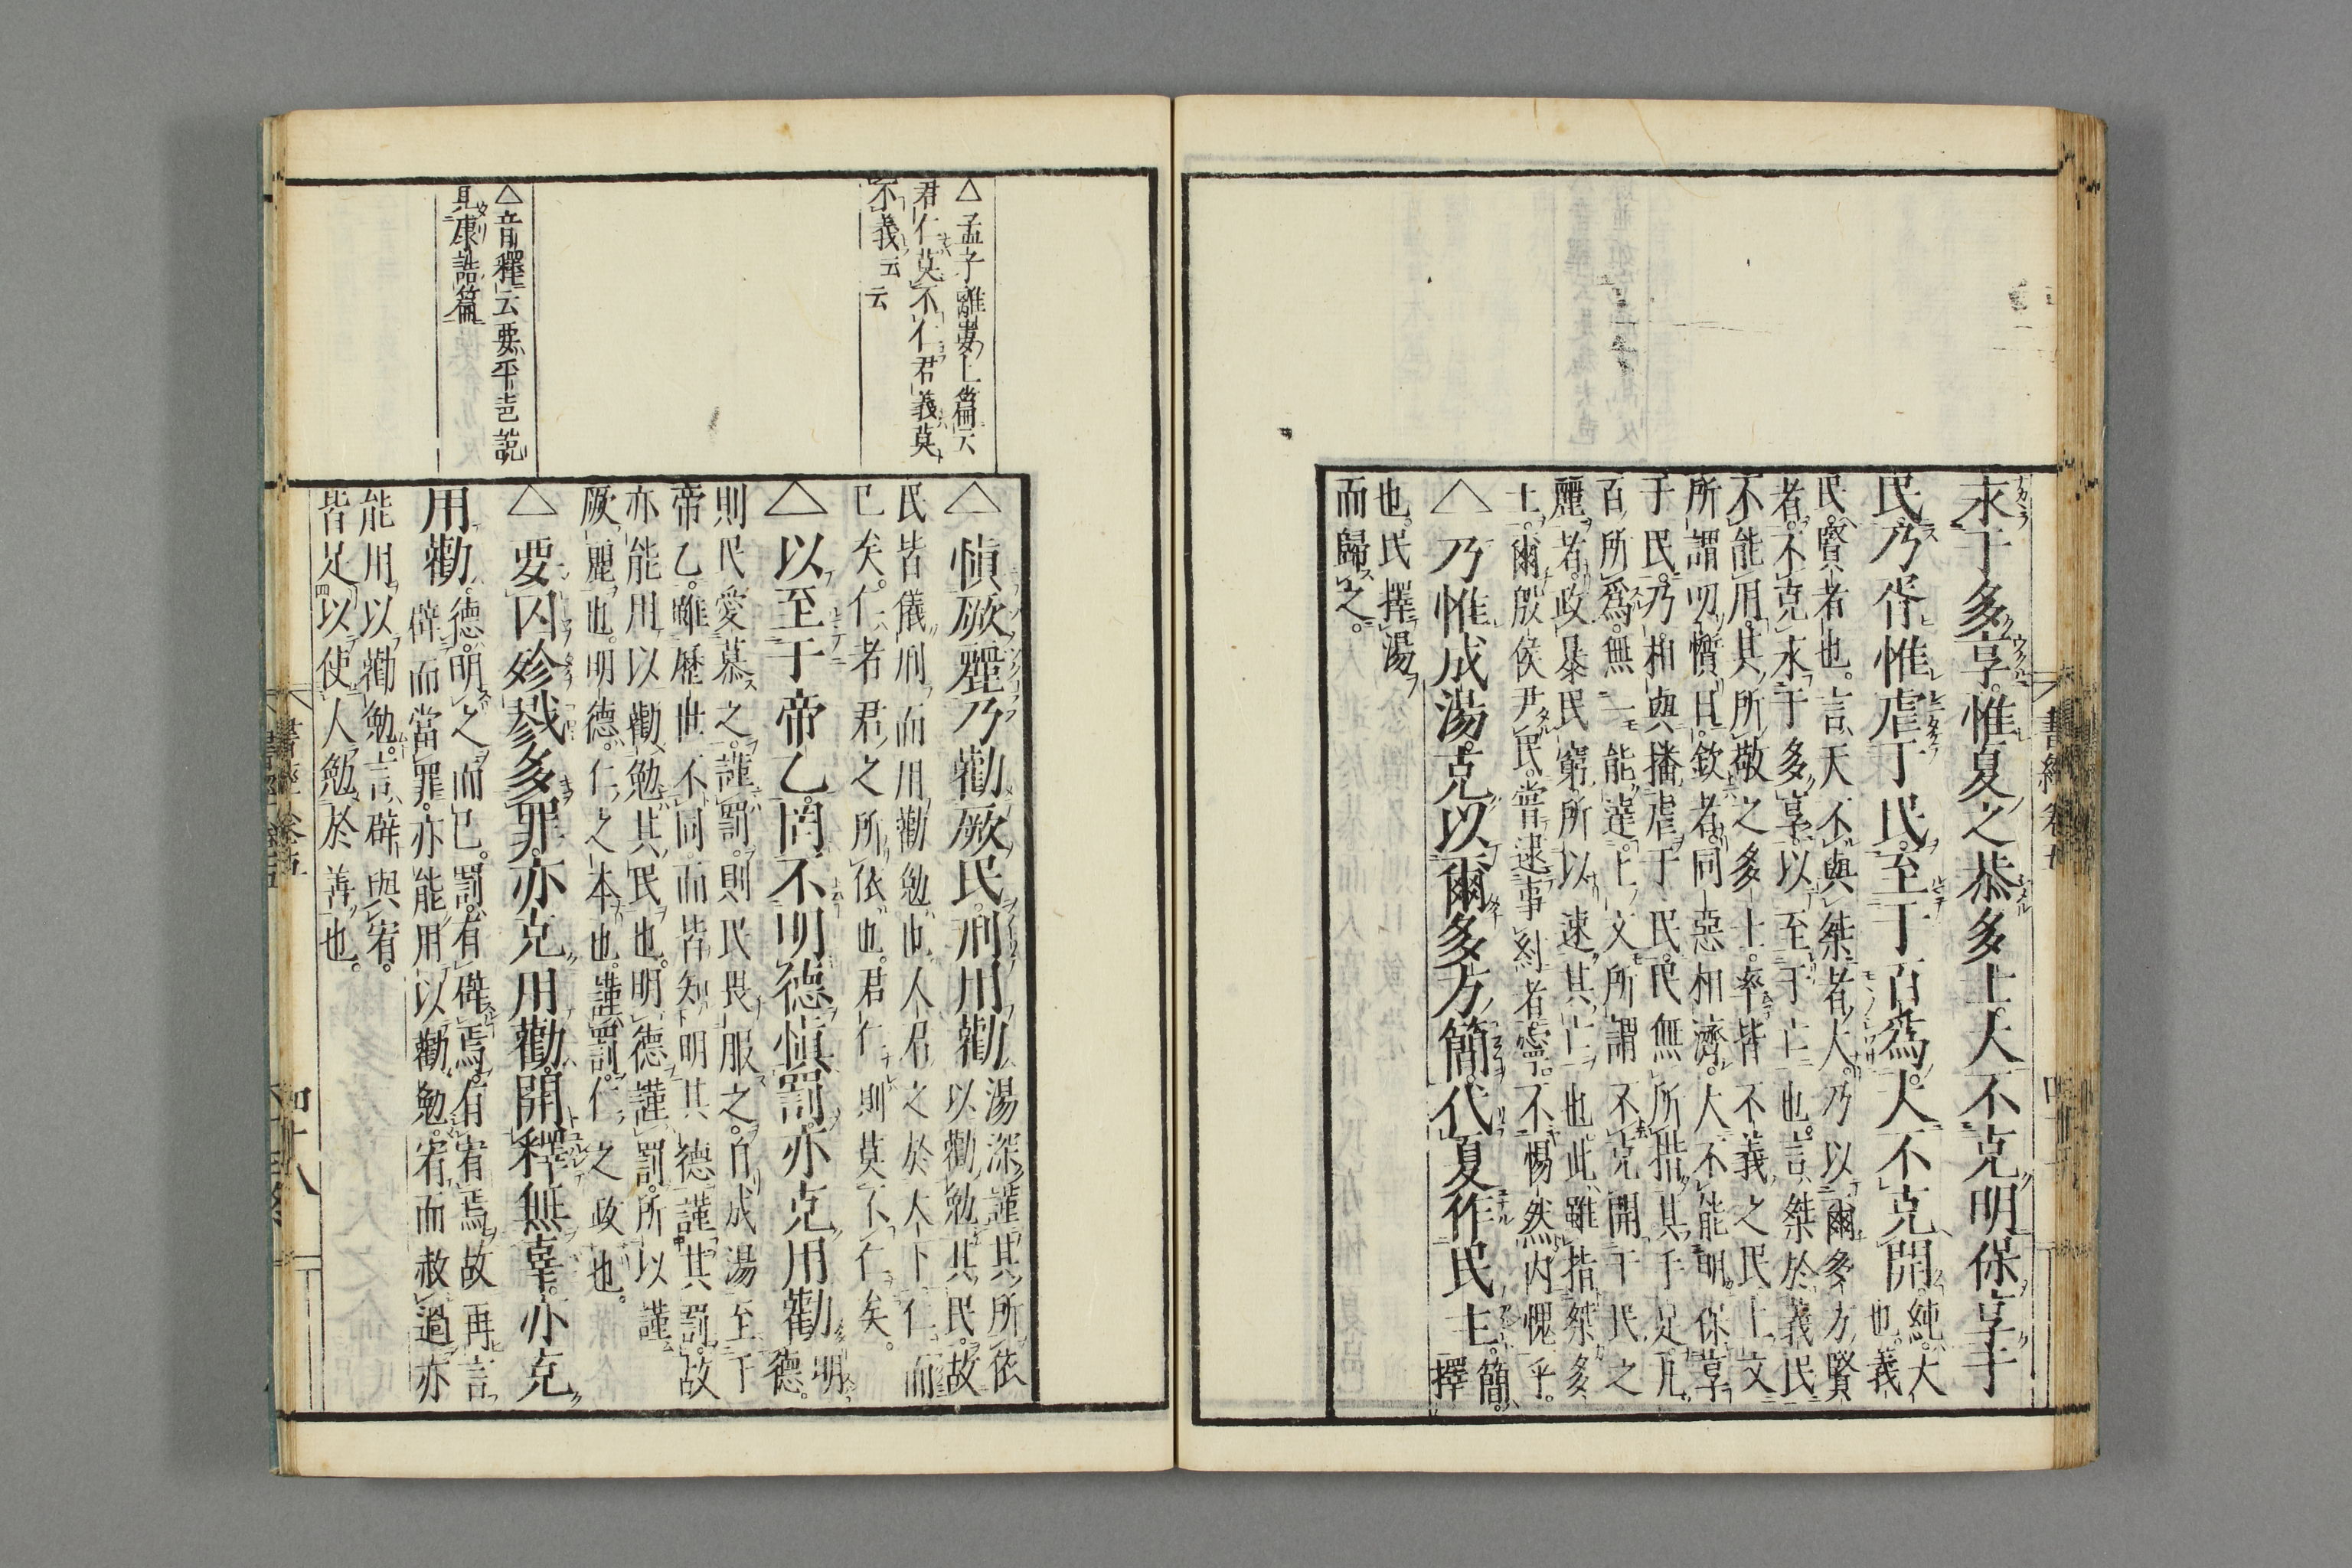 永于多享惟夏之恭多士大不克明保享于
民乃胥惟虐于民至于百爲大不克開純大也義
民賢者也言天不與桀者大乃以爾多方賢
者不克永于多享以至于亡也言桀於義民
不能用其所敬之多士率皆不義之民上文
所謂叨懫日欽者同惡相濟大不能明保享
于民乃相與播虐于民民無所措其手足凡
百所爲無一能達上文所謂不克開于民之
麗者政暴民窮所以速其亡也此雖指桀多
士爾殷侯尹民嘗逮事紂者寧不惕然内愧乎
△乃惟成湯克以爾多方簡代夏作民主簡擇
也民擇湯
而歸之
書經卷五
△愼厥麗乃勸厥民刑用勸湯深謹其所依
以勸勉其民故
民皆儀刑而用勸勉也人君之於天下仁而
已矣仁者君之所依也君仁則莫不仁矣
△以至于帝乙罔不明德愼罰亦克用勸明德
則民愛慕之謹罰則民畏服之自成湯至于
帝乙雖歷世不同而皆知明其德謹其罰故
亦能用以勸勉其民也明德謹罰所以謹
厥麗也明德仁之本也謹罰仁之政也
△要囚殄戮多罪亦克用勸開釋無辜亦克
用勸德明之而已罰有辟焉有宥焉故再言
辟而當罪亦能用以勸勉宥而赦過亦
能用以勸勉言辟與宥
皆足以使人勉於善也
△孟子離婁上篇云
君仁莫不仁君義莫
不義云云
△音釋云要平声説
見康誥篇
書經卷五
四十八